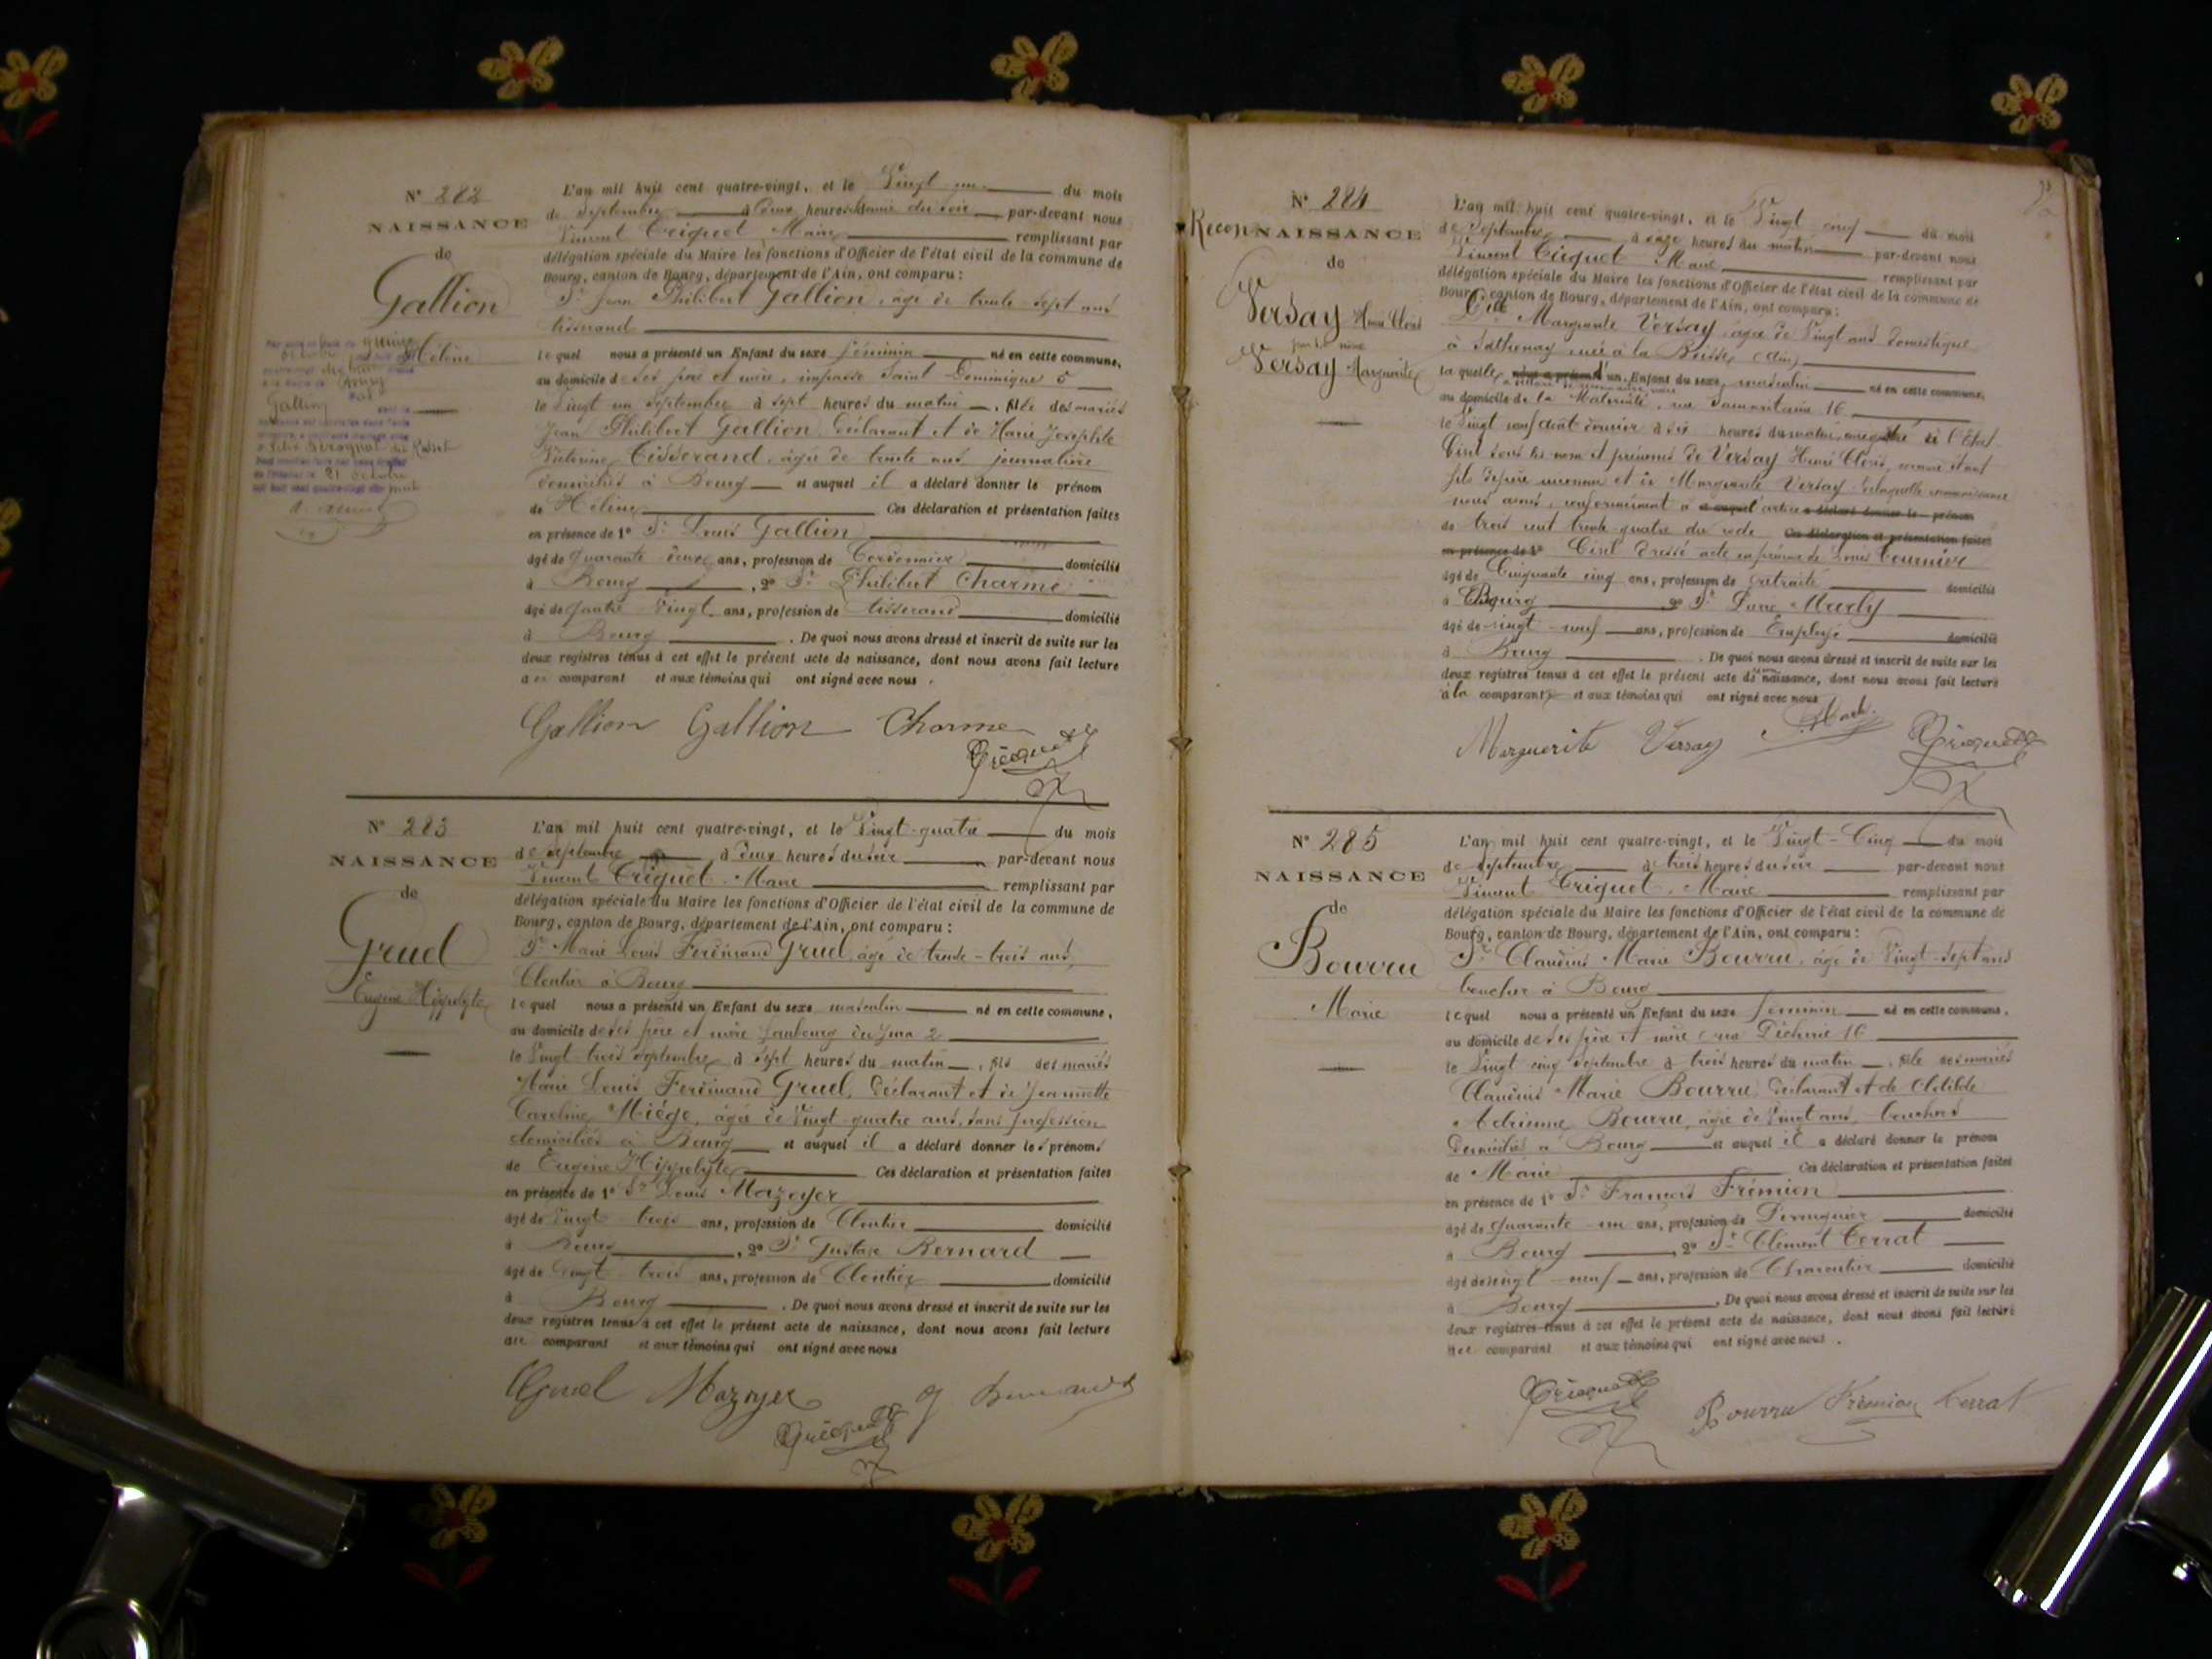 N° 282
NAISSANCE
de
Gallion
Hélène
L'an mil huit cent quatre-vingt, et le Vingt un du mois
de Septembre à deux heures du soir par-devant nous
Vincent Criquet, Maire remplissant par
délégation spéciale du Maire les fonctions d'Officier de l'état civil de la commune de
Bourg, canton de Bourg, département de l'Ain, ont comparu :
Sr Jean Philibert Gallion, âgé de trente-sept ans
tisserand
lequel nous a présenté un Enfant du sexe féminin né en cette commune,
au domicile de ses père et mère, impasse Saint Dominique 5
le Vingt un Septembre à sept heures du matin, fille des mariés
Jean Philibert Gallion, déclarant et de Marie Josephte
Victorine Tisserand, âgée de trente ans journalière
domiciliés à Bourg et auquel il a déclaré donner le prénom
de Hélène Ces déclaration et présentation faites
en présence de 1° Sr Louis Gallion
âgé de quarante deux ans, profession de Cordonnier domicilié
à Bourg, 2° Sr Philibert Charme
âgé de quatre Vingt ans, profession de tisserand domicilié
à Bourg. De quoi nous avons dressé et inscrit de suite sur les
deux registres tenus à cet effet le présent acte de naissance, dont nous avons fait lecture
au comparant et aux témoins qui ont signé avec nous.
Gallion Gallion Charme
Criquet
N° 283
NAISSANCE
de
Gruel
Eugène Hippolyte
L'an mil huit cent quatre-vingt, et le Vingt-quatre du mois
de Septembre à deux heures du soir par-devant nous
Vincent Criquet, Maire remplissant par
délégation spéciale du Maire les fonctions d'Officier de l'état civil de la commune de
Bourg, canton de Bourg, département de l'Ain, ont comparu :
Sr Marie Louis Ferdinand Gruel, âgé de trente-trois ans,
Cloutier à Bourg
lequel nous a présenté un Enfant du sexe masculin né en cette commune,
au domicile de ses père et mère faubourg du Jura 2
le Vingt trois Septembre à sept heures du matin, fils des mariés
Marie Louis Ferdinand Gruel, déclarant et de Jeannette
Caroline Miège, âgée de Vingt quatre ans, sans profession
domiciliés à Bourg et auquel il a déclaré donner les prénoms
de Eugène Hippolyte Ces déclaration et présentation faites
en présence de 1° Sr Louis Mazoyer
âgé de Vingt trois ans, profession de Cloutier domicilié
à Bourg, 2° Sr Gustave Bernard
âgé de Vingt trois ans, profession de Cloutier domicilié
à Bourg. De quoi nous avons dressé et inscrit de suite sur les
deux registres tenus à cet effet le présent acte de naissance, dont nous avons fait lecture
au comparant et aux témoins qui ont signé avec nous
Gruel Mazoyer G Bernard
Criquet
N° 284
Recon NAISSANCE
de
Versay Henri Clovis
par la mère
Versay Marguerite
L'an mil huit cent quatre-vingt, et le Vingt cinq du mois
de Septembre à onze heures du matin par-devant nous
Vincent Criquet Maire remplissant par
délégation spéciale du Maire les fonctions d'Officier de l'état civil de la commune de
Bourg, canton de Bourg, département de l'Ain, ont comparu :
Dlle Marguerite Versay, âgée de Vingt ans domestique
à née à la Boisse, (Ain)
laquelle nous a présenté d'un Enfant du sexe masculin né en cette commune,
au domicile de la Maternité, rue Samaritaine 16
le Vingt neuf août dernier à six heures du matin, enregistré à l'État
Civil sous les nom et prénoms de Versay Henri Clovis, comme étant
fils de père inconnu et de Marguerite Versay
nous avons, conformément à auquel article a déclaré donner le prénom
de trois cent trente-quatre du code Ces déclaration et présentation faites
en présence de 1° Civil dressé acte en présence de Louis Tournier
âgé de Cinquante cinq ans, profession de retraité domicilié
à Bourg 2° Sr Marly
âgé de vingt-neuf ans, profession de Employé domicilié
à Bourg. De quoi nous avons dressé et inscrit de suite sur les
deux registres tenus à cet effet le présent acte de naissance, dont nous avons fait lecture
à la comparante et aux témoins qui ont signé avec nous
Marguerite Versay
Criquet
N° 285
NAISSANCE
de
Bourru
Marie
L'an mil huit cent quatre-vingt, et le Vingt-Cinq du mois
de Septembre à trois heures du soir par-devant nous
Vincent Criquet, Maire remplissant par
délégation spéciale du Maire les fonctions d'Officier de l'état civil de la commune de
Bourg, canton de Bourg, département de l'Ain, ont comparu :
Sr Claudius Marie Bourru, âgé de Vingt-Sept ans
boucher à Bourg
lequel nous a présenté un Enfant du sexe féminin né en cette commune,
au domicile de ses père et mère rue 16
le Vingt cinq Septembre à trois heures du matin, fille des mariés
Claudius Marie Bourru, déclarant et de Clotilde
Adrienne Bourru, âgée de Vingt ans, bouchers
domiciliés à Bourg et auquel il a déclaré donner le prénom
de Marie Ces déclaration et présentation faites
en présence de 1° Sr François Frémion
âgé de quarante-un ans, profession de Perruquier domicilié
à Bourg, 2° Sr Clément Terrat
âgé de vingt-neuf ans, profession de Charcutier domicilié
à Bourg. De quoi nous avons dressé et inscrit de suite sur les
deux registres tenus à cet effet le présent acte de naissance, dont nous avons fait lecture
au comparant et aux témoins qui ont signé avec nous.
Criquet Bourru Frémion Terrat